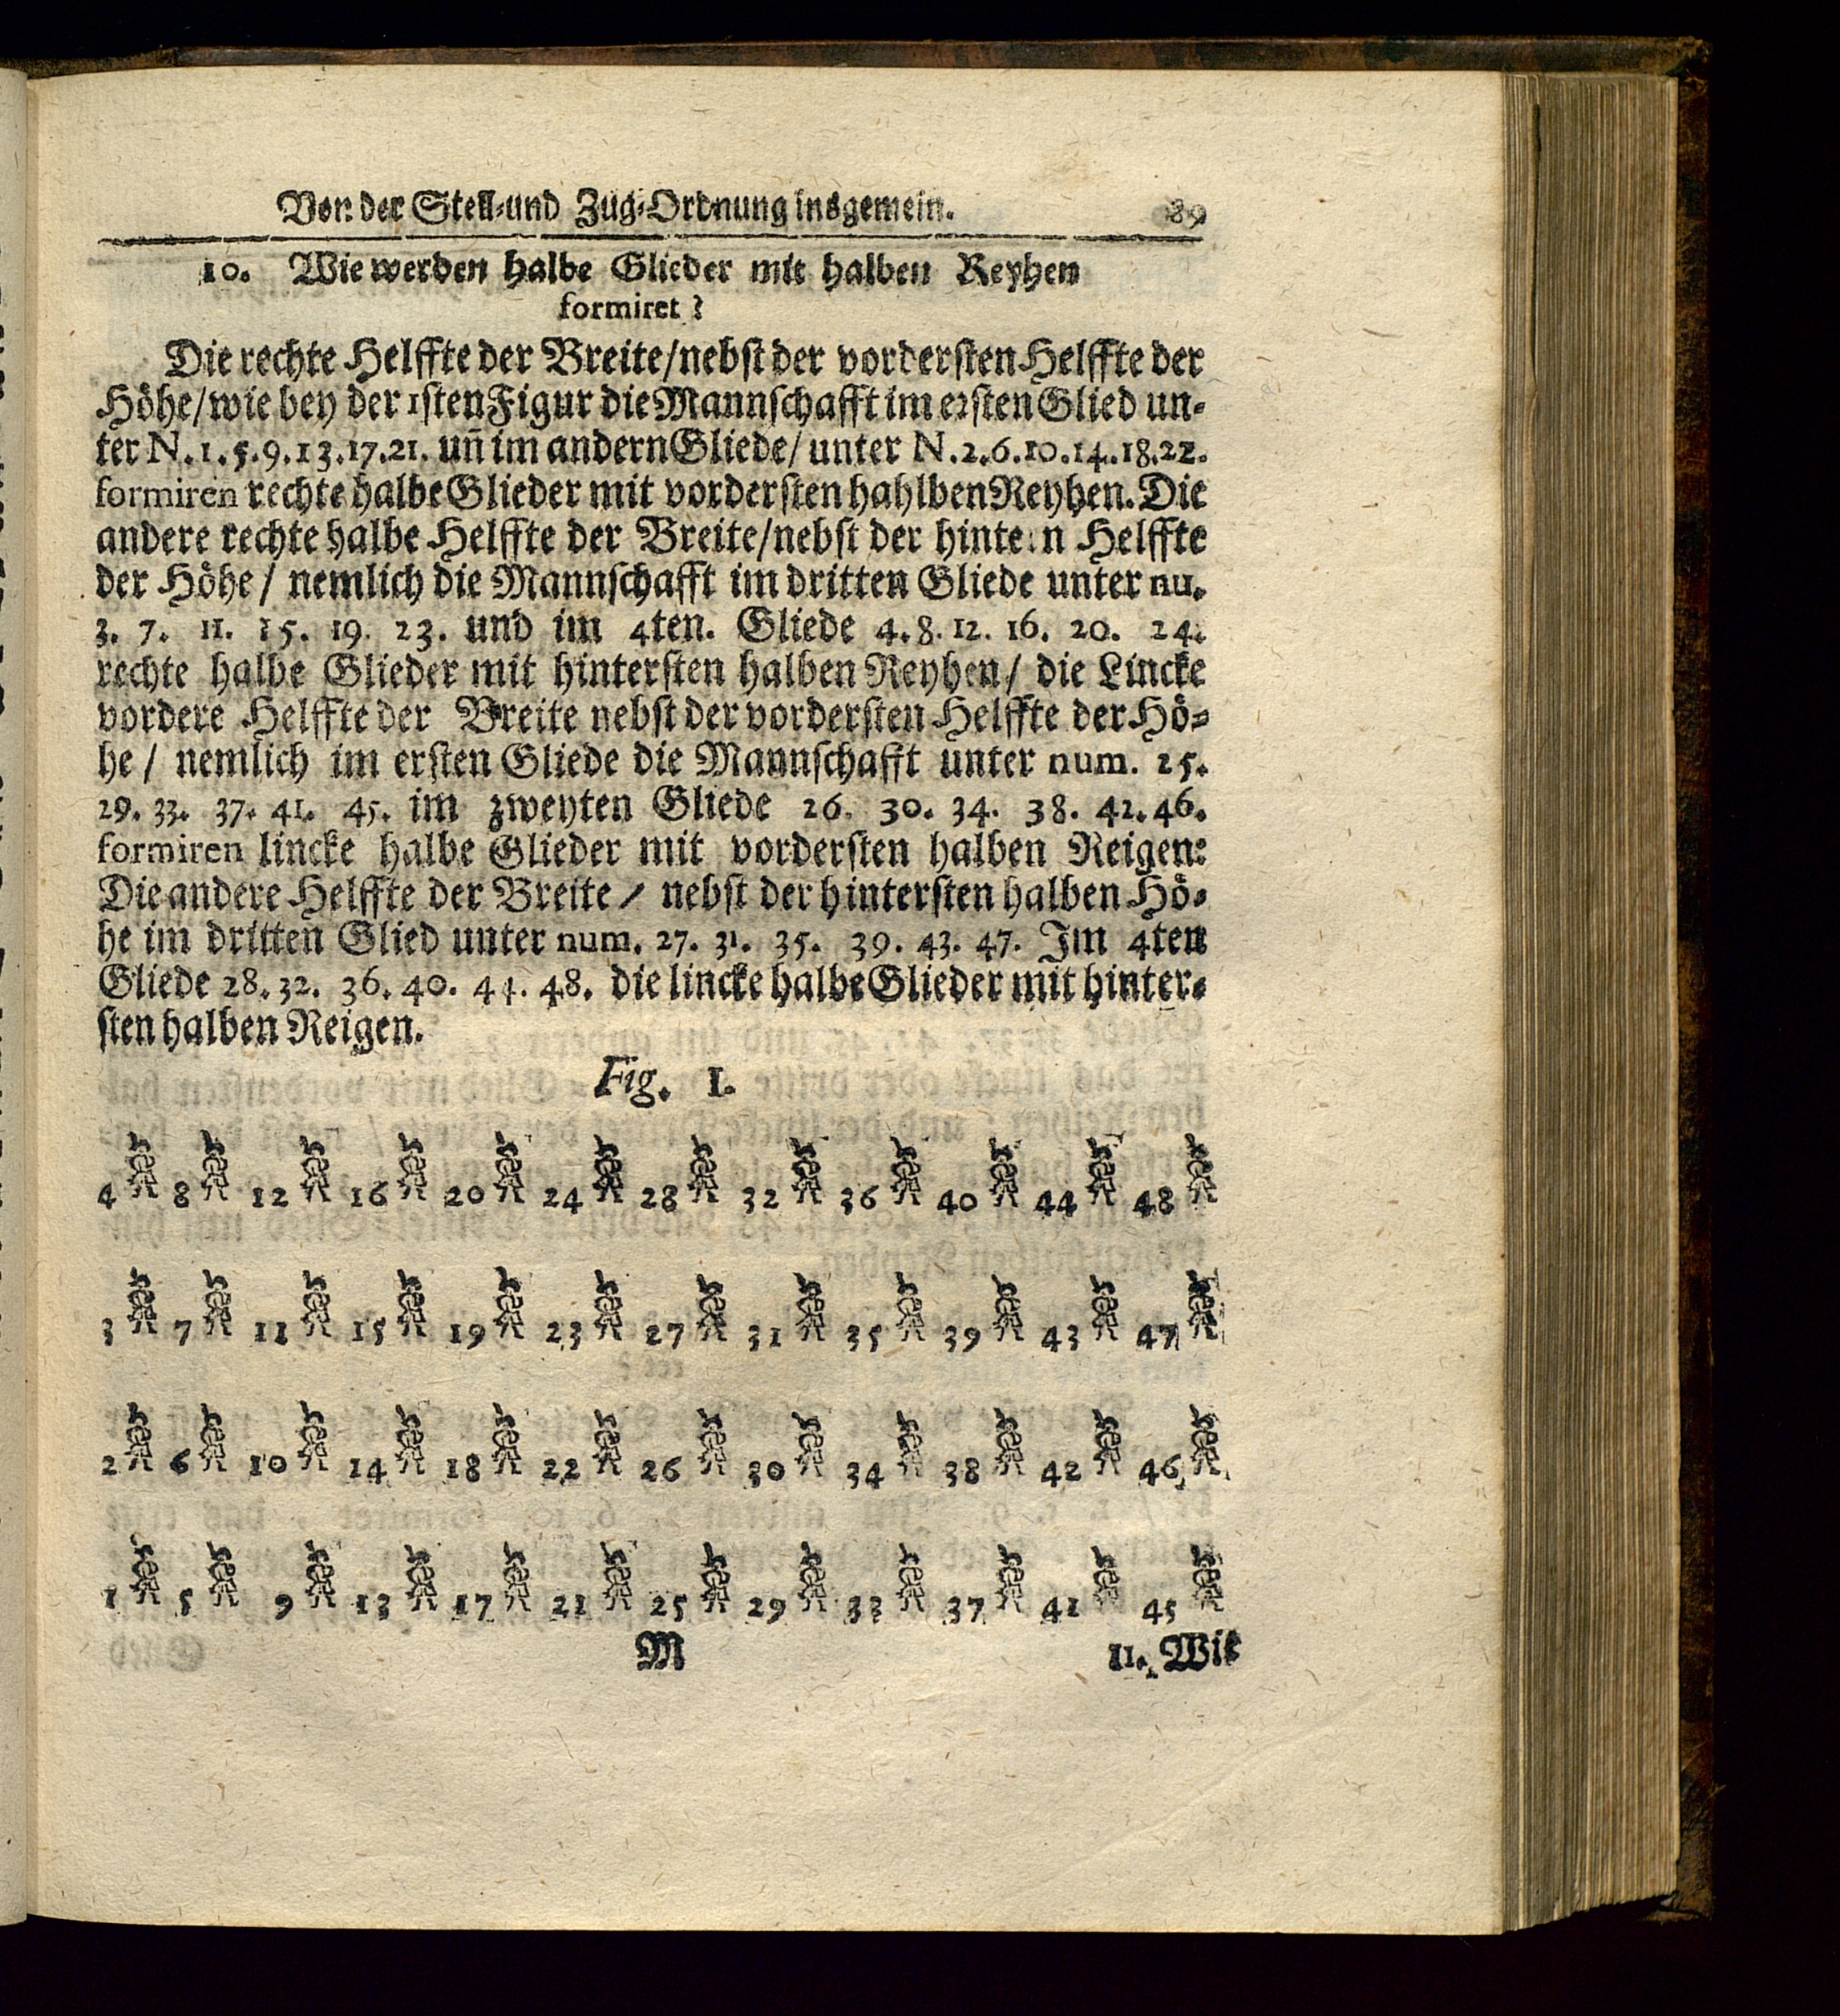 Von der Stell-und Zug-Ordnung insgemein. 89
10. Wie werden halbe Glieder mit halben Reyhen
formiret?
Die rechte Helffte der Breite/nebst der vordersten Helffte der
Höhe/wie bey der 1sten Figur die Mannschafft im ersten Glied un-
ter N. 1. 5. 9. 13. 17. 21. uñ im andern Gliede/ unter N. 2. 6. 10. 14. 18. 22.
formiren rechte halbe Glieder mit vordersten hahlben Reyhen. Die
andere rechte halbe Helffte der Breite/nebst der hintern Helffte
der Höhe / nemlich die Mannschafft im dritten Gliede unter nu.
3. 7. 11. 15. 19. 23. und im 4ten. Gliede 4. 8. 12. 16. 20. 24.
rechte halbe Glieder mit hintersten halben Reyhen/ die Lincke
vordere Helffte der Breite nebst der vordersten Helffte der Hö-
he / nemlich im ersten Gliede die Mannschafft unter num. 25.
29. 33. 37. 41. 45. im zweyten Gliede 26. 30. 34. 38. 42. 46.
formiren lincke halbe Glieder mit vordersten halben Reigen:
Die andere Helffte der Breite / nebst der hintersten halben Hö-
he im dritten Glied unter num. 27. 31. 35. 39. 43. 47. Im 4ten
Gliede 28. 32. 36. 40. 44. 48. die lincke halbe Glieder mit hinter-
sten halben Reigen.
Fig. I.
4 8 12 16 20 24 28 32 36 40 44 48
3 7 11 15 19 23 27 31 35 39 43 47
2 6 10 14 18 22 26 30 34 38 42 46
1 5 9 13 17 21 25 29 33 37 41 45
M 11. Wie